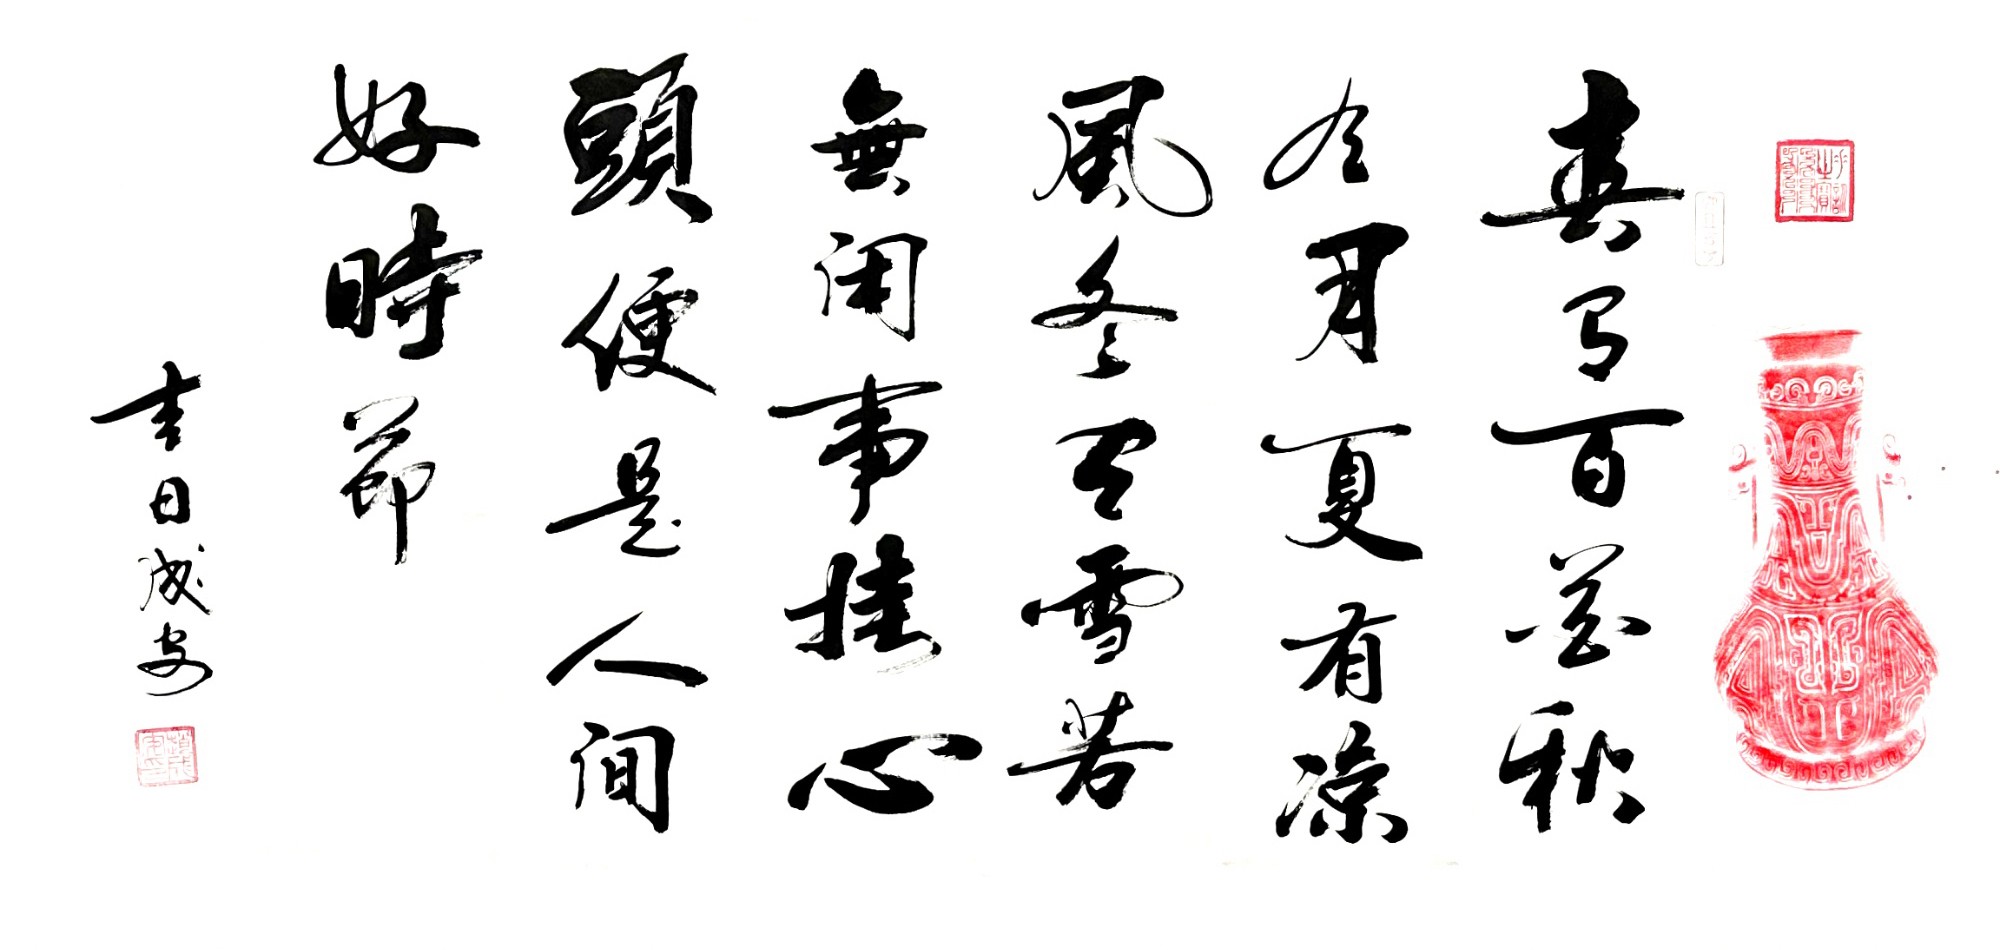 春有百花秋
有月夏有凉
風冬有雪若
無闲事挂心
頭便是人间
好時節
春日成安